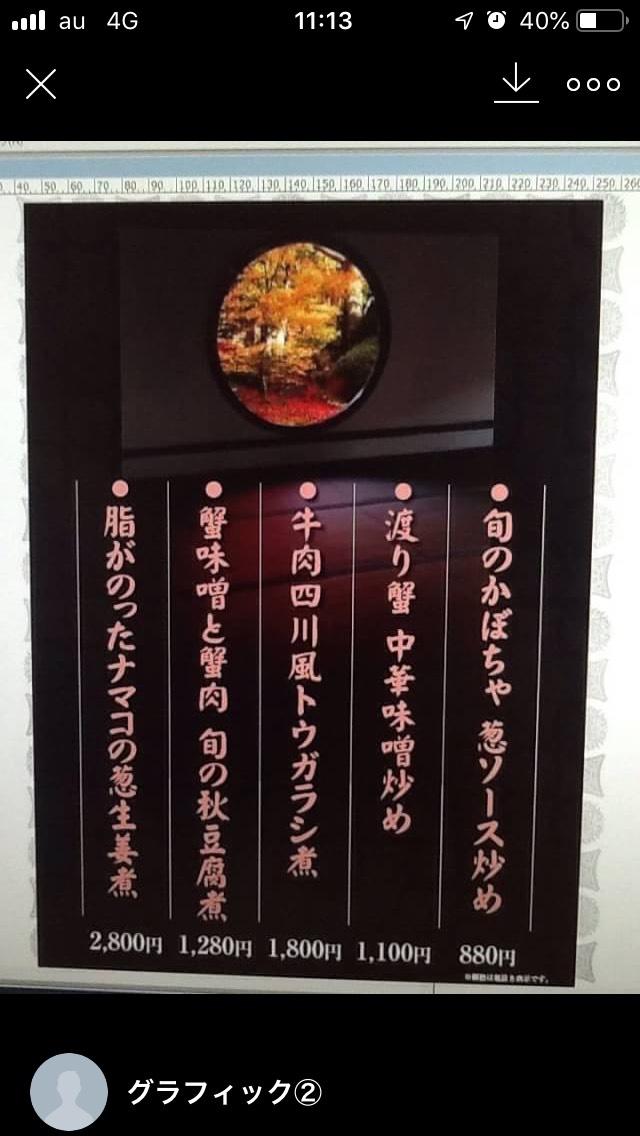 au 4G
11:13
40%
40 50 60 70 80 90 100 110 120 130 140 150 160 170 180 190 200 210 220 230 240 250 260
●旬のかぼちゃ 葱ソース炒め
880円
●渡り蟹 中華味噌炒め
1,100円
●牛肉四川風トウガラシ煮
1,800円
●蟹味噌と蟹肉 旬の秋豆腐煮
1,280円
●脂がのったナマコの葱生姜煮
2,800円
※価格は税抜き表示です。
グラフィック②